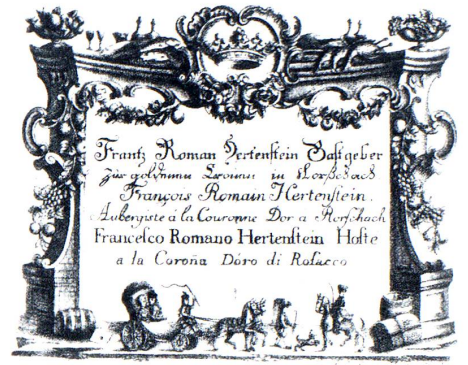 Frantz Roman Hertenstein Gastgeber
zur goldenen Cronen in Rorschach
François Romain Hertenstein.
Aubergiste á la Couronne Dor a Rorschach
Francesco Romano Hertenstein Hoste
a la Coroña Dóro di Rosacco